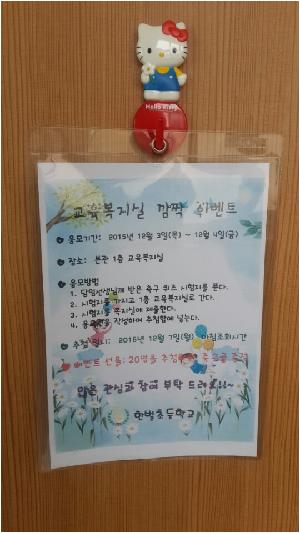 Hello Kitty
교육복지실 깜짝 이벤트
응모기간: 2015년 12월 3일(목) ~ 12월 4일(금)
장소: 본관 1층 교육복지실
응모방법
1. 담임선생님께 받은 축구 퀴즈 시험지를 푼다.
2. 시험지를 가지고 1층 교육복지실로 간다.
3. 시험지를 복지실에 제출한다.
4. 응모권을 작성하여 추첨함에 넣는다.
추첨 일시: 2015년 12월 7일(월) 아침조회시간
이벤트 선물: 20명을 추첨하여
많은 관심과 참여 부탁 드려요!!~
초등학교